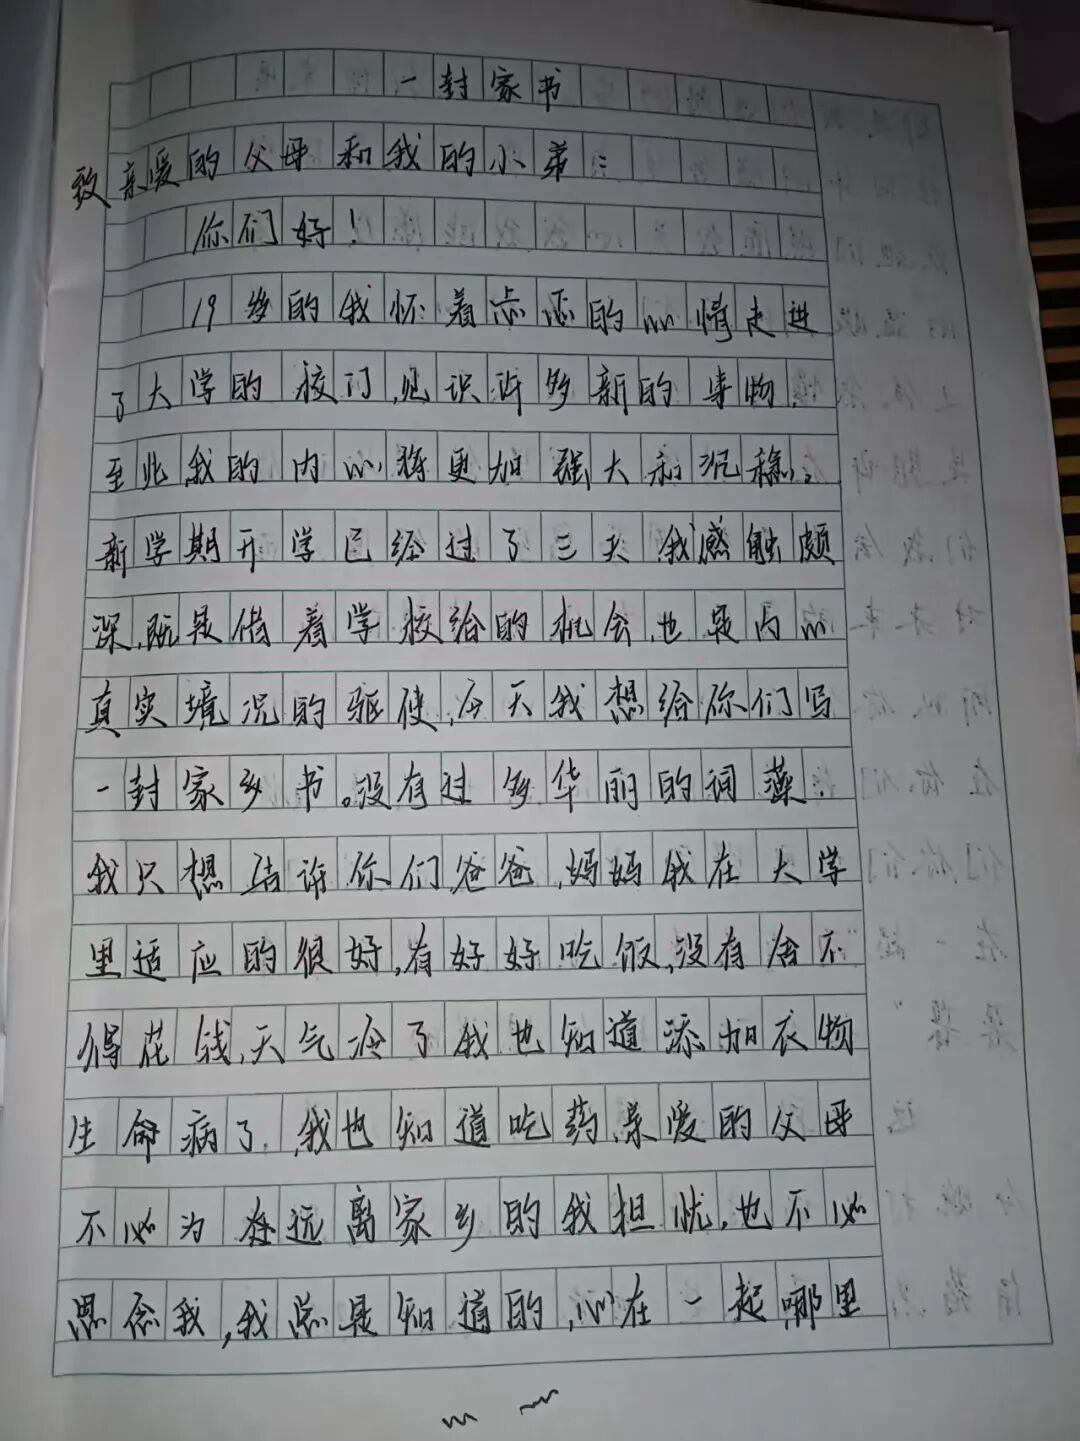 一封家书
致亲爱的父母和我的小弟：
你们好！
19岁的我怀着忐忑的心情走进
了大学的校门，见识许多新的事物，
至此，我的内心将更加强大和沉稳。
新学期开学已经过了三天，我感触颇
深，既是借着学校给的机会，也是内心
真实境况的驱使，今天我想给你们写
一封家乡书。没有过多华丽的词藻，
我只想告诉你们，爸爸，妈妈我在大学
里适应的很好，有好好吃饭，没有舍不
得花钱，天气冷了我也知道添加衣物
生命病了，我也知道吃药，亲爱的父母
不必为在远离家乡的我担忧，也不必
思念我，我总是知道的，心在一起，哪里